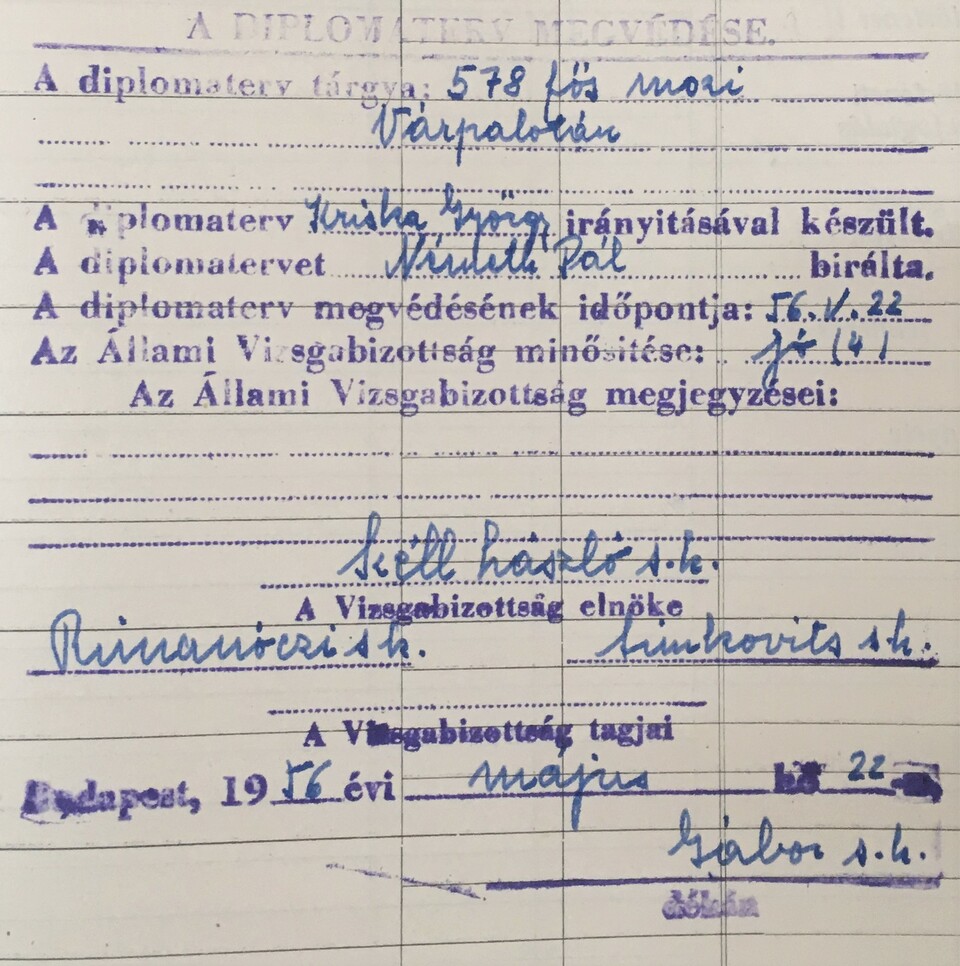 A DIPLOMATERV MEGVÉDÉSE.
A diplomaterv tárgya: 578 fős mozi
Várpalotán
A diplomaterv Kriska György irányitásával készült.
A diplomatervet Németh Pál birálta.
A diplomaterv megvédésének időpontja: 56.V.22
Az Állami Vizsgabizottság minősitése: jó (4)
Az Állami Vizsgabizottság megjegyzései:
Széll László s.k.
A Vizsgabizottság elnöke
Rimanóczi s.k. Simkovits s.k.
A Vizsgabizottság tagjai
Budapest, 1956 évi május hó 22
Gábor s.k.
dékán